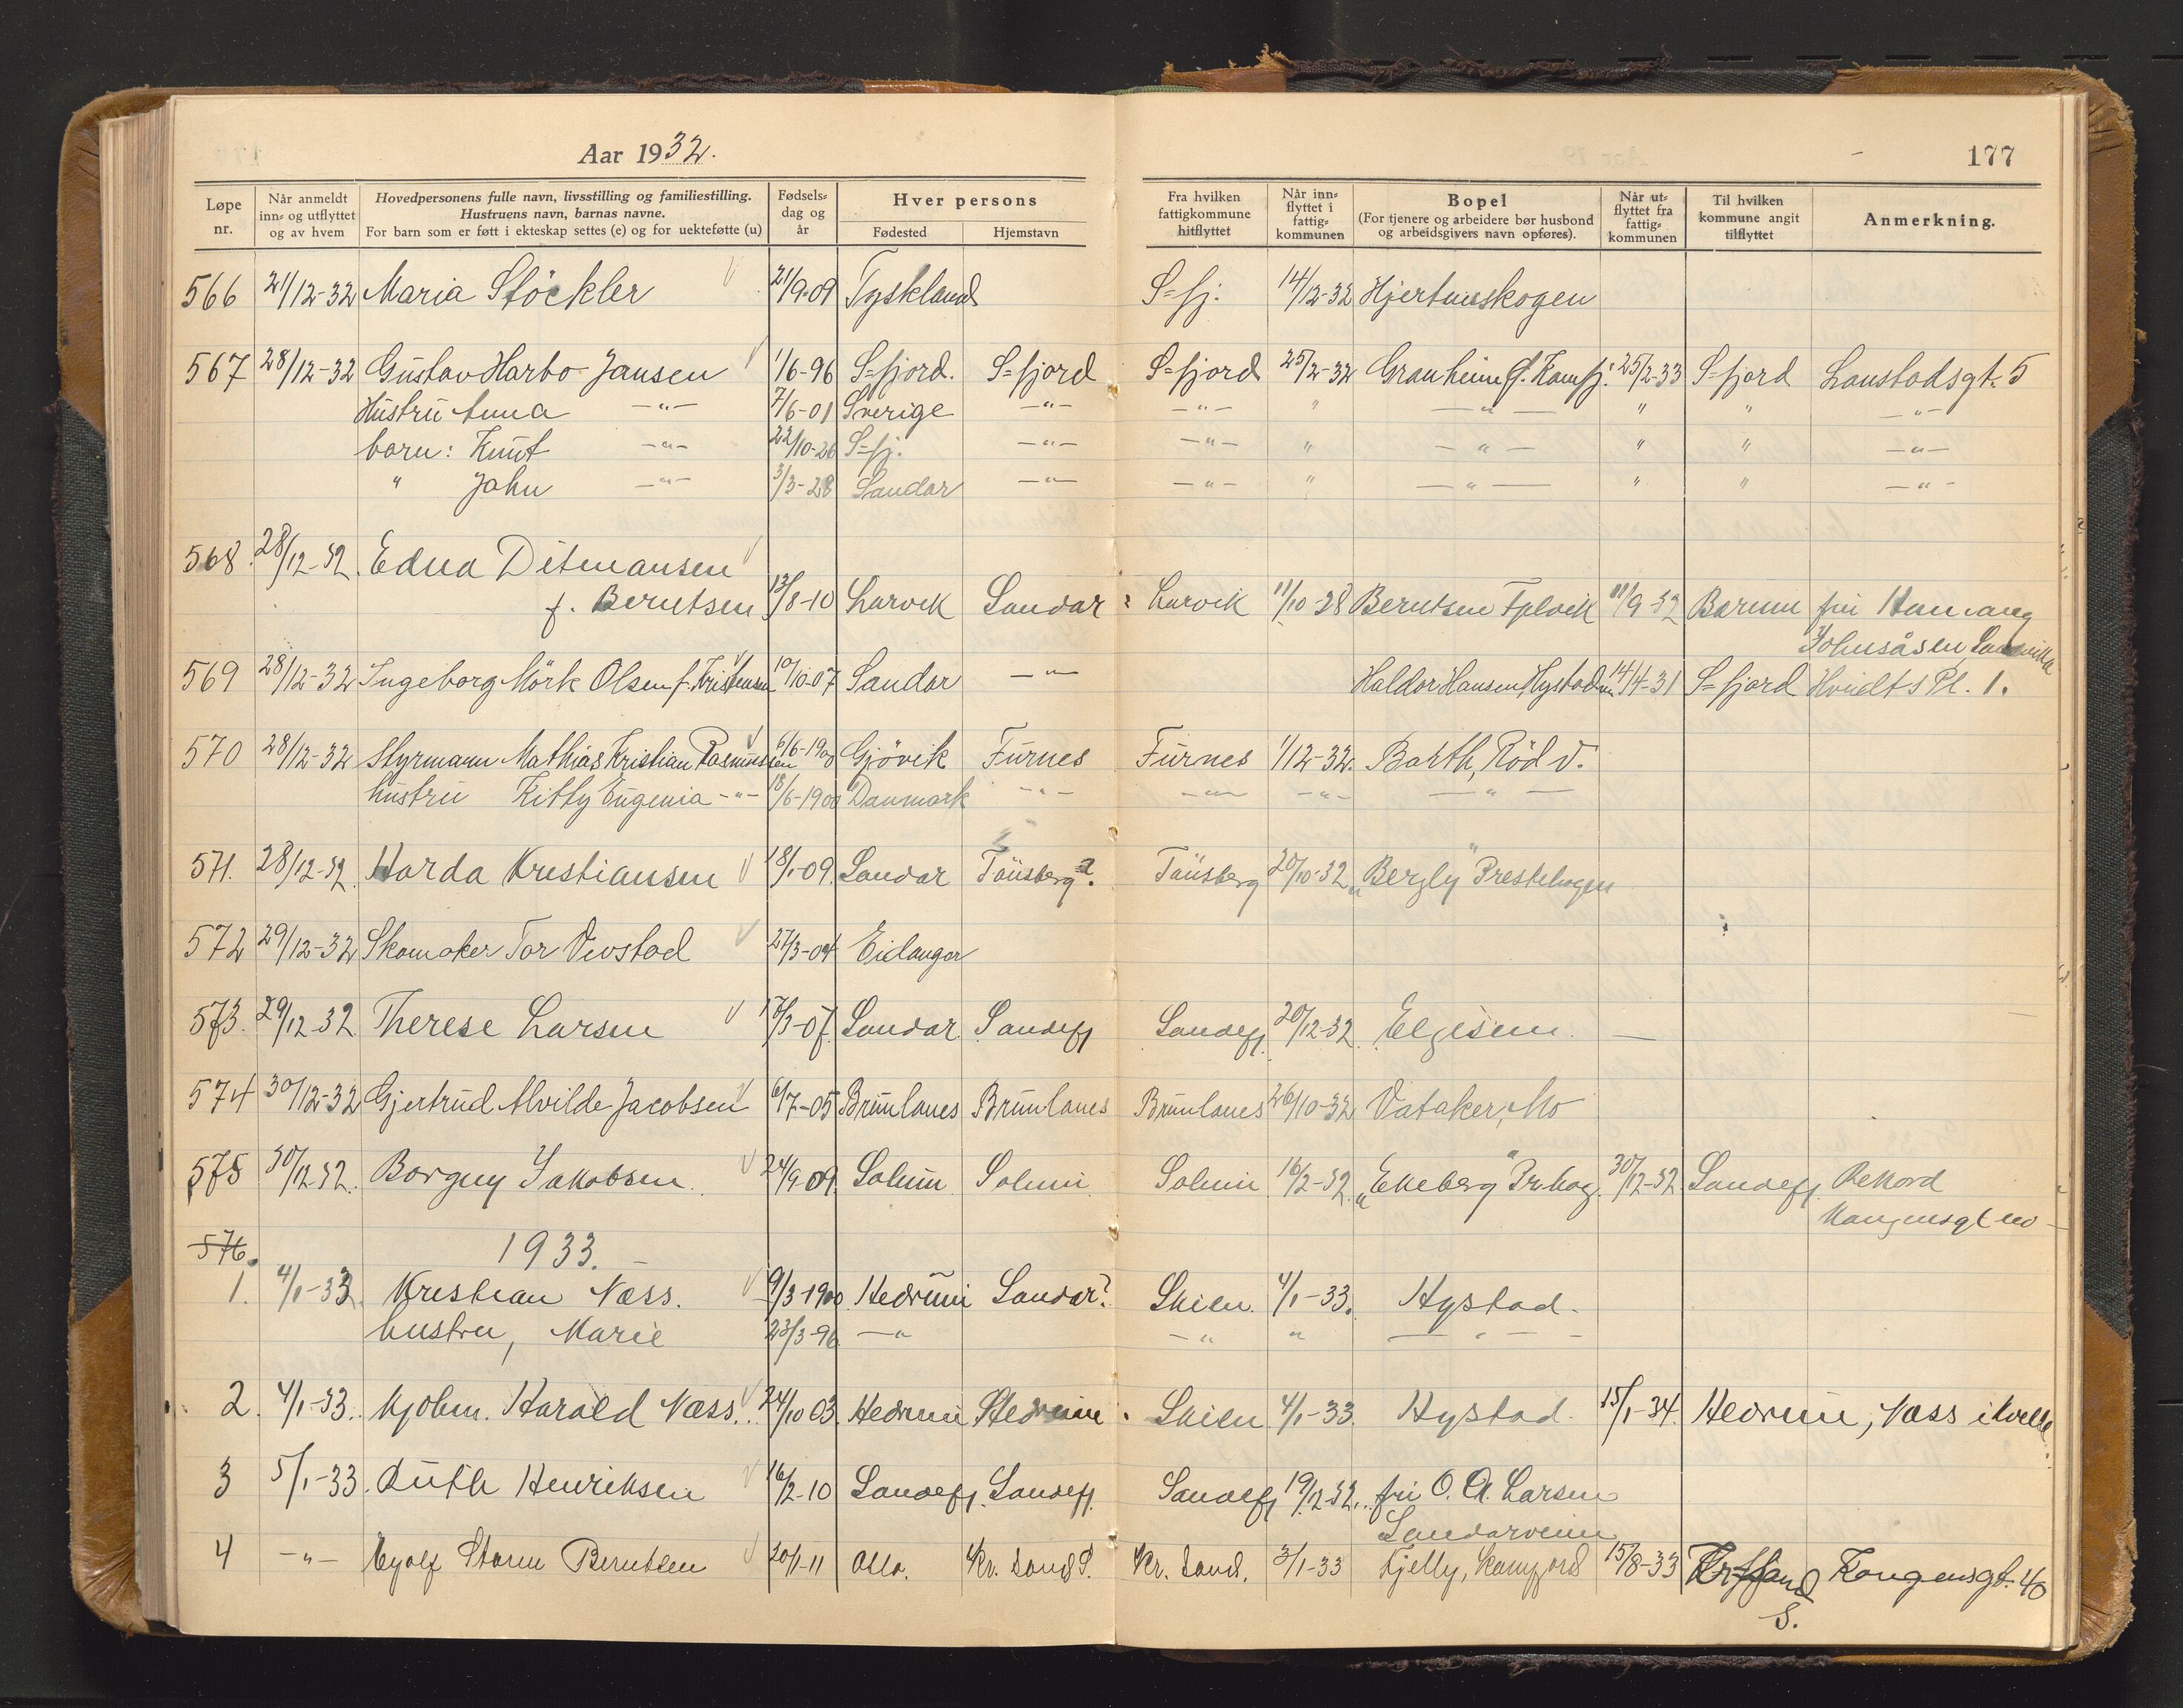 Aar 1932.
177
Løpe nr.
Når anmeldt inn- og utflyttet og av hvem
Hovedpersonens fulle navn, livsstilling og familiestilling. Hustruens navn, barnas navne. For barn som er født i ekteskap settes (e) og for uekteføtte (u)
Fødsels- dag og år
Hver persons
Fødested
Hjemstavn
Fra hvilken fattigkommune hitflyttet
Når inn- flyttet i fattig- kommunen
Bopel (For tjenere og arbeidere bør husbond og arbeidsgivers navn opføres).
Når ut- flyttet fra fattig- kommunen
Til hvilken kommune angit tilflyttet
Anmerkning.
566 21/12-32 Maria Stöckler 21/9-09 Tyskland S=fj. 14/12-32 Hjertnesskogen
567 28/12-32 Gustav Harbo Jansen 1/6-96 S=fjord. S=fjord S=fjord 25/2-32 Granheim p. Kamfj. 25/2-33 S=fjord Lanstadsgt. 5
Hustru Anna -"- 7/6-01 Sverige -"- -"- " -"- " " -"-
barn: Knut -"- 22/10-26 S=fj. -"- -"- " -"- " " -"-
" Jahn -"- 3/3-28 Sandar -"- -"- " -"- " " -"-
568. 28/12-32. Edna Ditmansen
f. Berntsen 13/8-10 Larvik Sandar Larvik 11/10-28 Berntsen 11/9-32 Bærum
Johnsåsen Sandvika
569 28/12-32 Ingeborg Mörk Olsen f. Kristensen 10/10-07 Sandar -"- Haldor Hansen Hystad 14/4-31 S=fjord Hvidts Pl. 1.
570 28/12-32 Styrmann Mathias Kristian Rasmussen 6/6-1900 Gjövik Furnes Furnes 1/12-32. Barth, Röd v.
hustru Kitty Eugenia -"- 18/6-1900 Danmark -"- -"- -"- -"-
571. 28/12-32. Harda Kristiansen 18/1-09. Sandar Tönsberg? Tönsberg 20/10-32 "Bergly" Prestehagen
572 29/12-32 Skomaker Tor Vivstad 27/3-04 Eidanger
573. 29/12-32 Therese Larsen 17/3-07 Sandar Sandefj Sandefj. 20/12-32. Elgesem. -
574 30/12-32 Gjertrud Alvilde Jacobsen 6/7-05 Brunlanes Brunlanes Brunlanes 26/10-32 Vataker, Mo
575 30/12-32. Borgny Jakobsen. 24/9-09. Solum Solum Solum 16/2-32. "Ekeberg" Pr.hag. 30/12-32. Sandefj. Rekord
576. 1933.
1. 4/1-33. Kristian Næss. 9/3-1900 Hedrum Sandar? Skien. 4/1-33. Hystad.
hustru, Marie 23/3-96 -"- -"- " -"-
2. 4/1-33. Harald Næss. 24/10 03. Hedrum Hedrum Skien 4/1-33. Hystad. 15/1-34. Hedrum, Næss i Kvelde
3 5/1-33. Ruth Henriksen 16/2-10 Sandefj. Sandefj. Sandefj 19/12-32. O. A. Larsen
Sandarveien
4 -"- Eyolf Storm Berntsen 20/1-11 Oslo. Kr. sand S. Kr. sand. 3/1-33 Fjelly, Kamfjord 15/8-33 Kr.sand Kongensgt. 40
S.